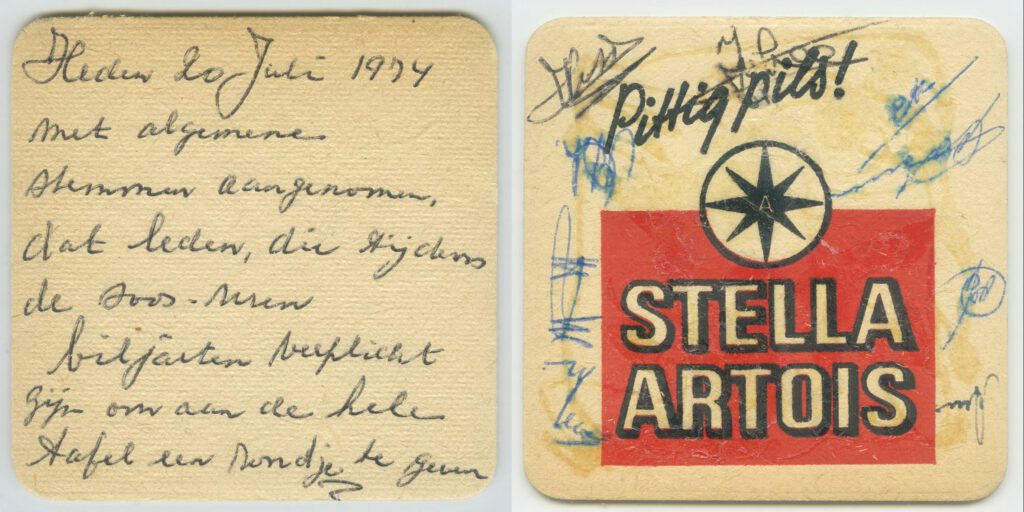 Heden 20 Juli 1974
met algemene
stemmen aangenomen,
dat leden, die tijdens
de soos-uren
biljarten verplicht
zijn om aan de hele
tafel een rondje te geven
Pittig pils!
A
STELLA
ARTOIS